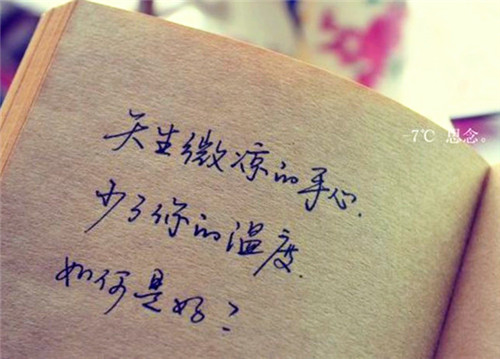 天生微凉的手心.
少了你的温度.
如何是好?
-7℃ 思念。